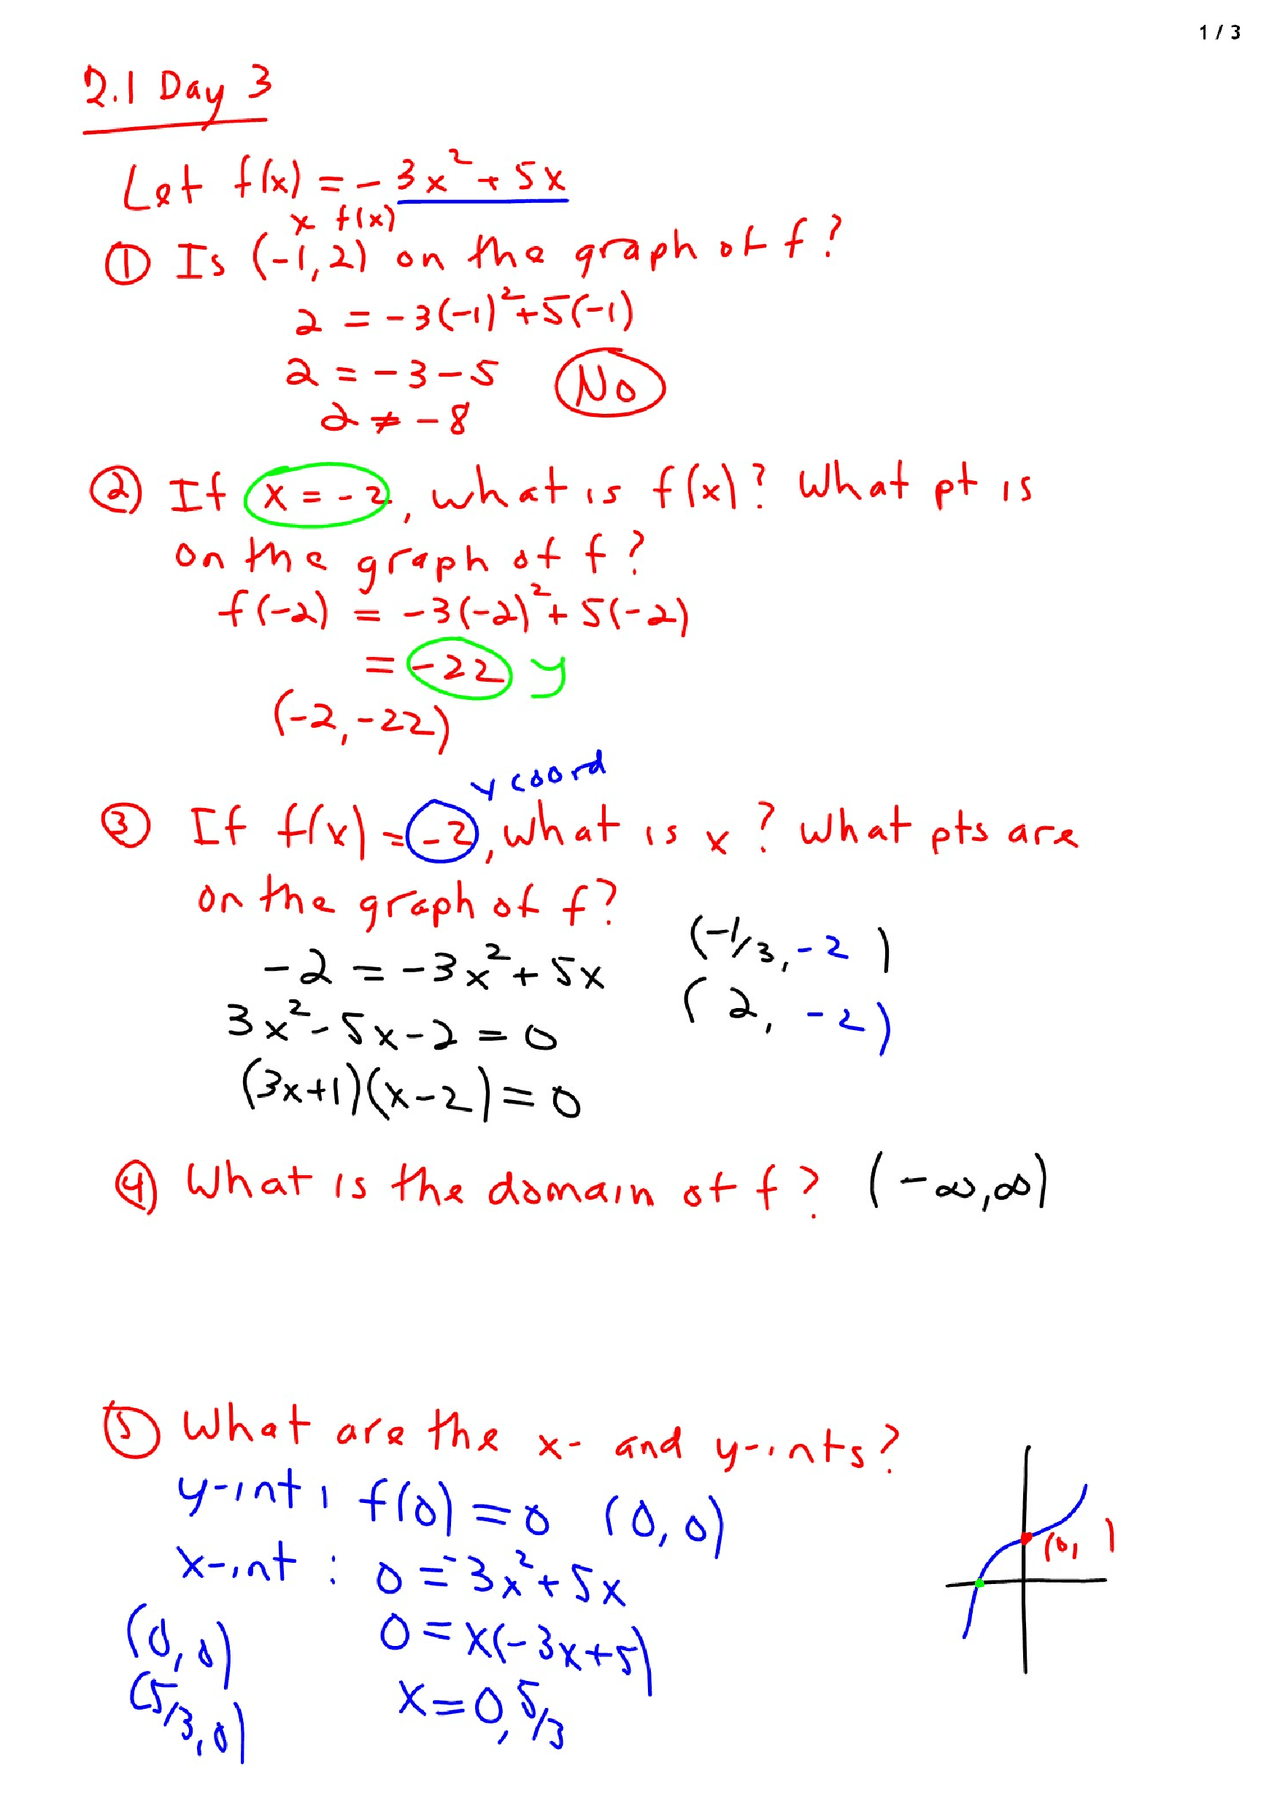 1 / 3
2.1 Day 3
Let f(x) = -3x² + 5x
x f(x)
① Is (-1,2) on the graph of f?
2 = -3(-1)²+5(-1)
2 = -3-5 No
2 ≠ -8
② If x = -2, what is f(x)? What pt is
on the graph of f?
f(-2) = -3(-2)²+ 5(-2)
= -22 y
(-2,-22)
y coord
③ If f(x) = -2, what is x? What pts are
on the graph of f?
(-1/3, -2)
-2 = -3x²+ 5x
(2, -2)
3x²-5x-2 = 0
(3x+1)(x-2) = 0
④ What is the domain of f? (-∞,∞)
⑤ What are the x- and y-ints?
y-int: f(0) = 0 (0,0)
(0, )
x-int: 0 = -3x²+5x
(0,0) 0 = x(-3x+5)
(5/3,0) x = 0, 5/3